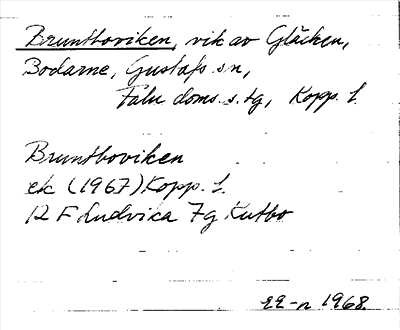 Bruntboviken, vik av Gläcken,
Bodarne, Gustafs sn,
Falu doms. s. tg, Kopp. l.
Bruntboviken
ek (1967) Kopp. l.
12 F Ludvica 7g Kutbo
1968.